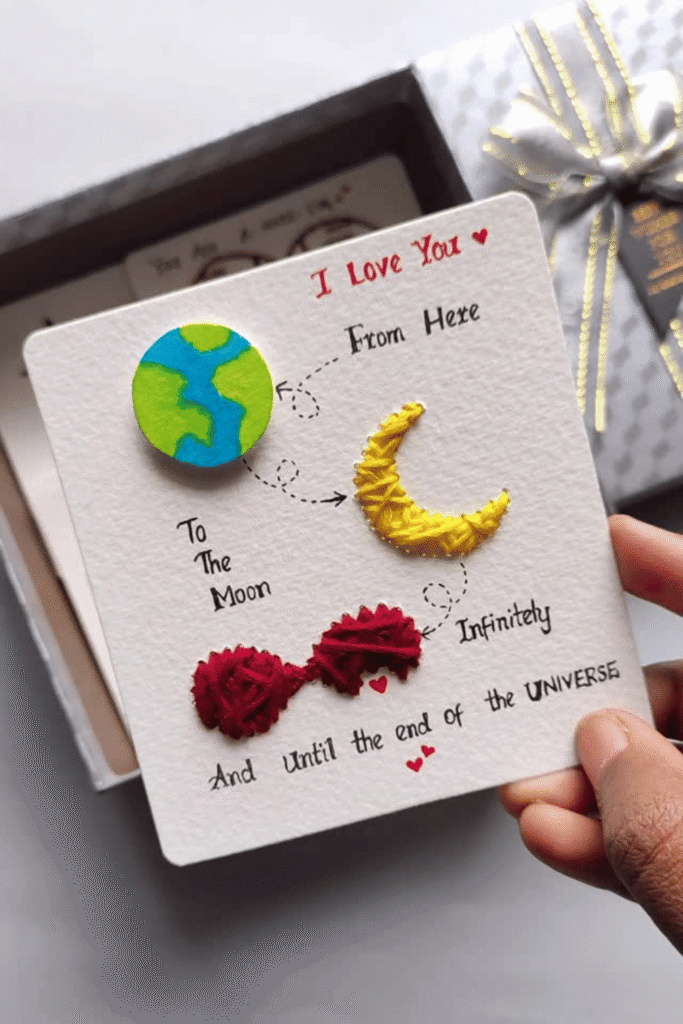 I Love You
From Here
To
The
Moon
Infinitely
And until the end of the UNIVERSE
You Are A